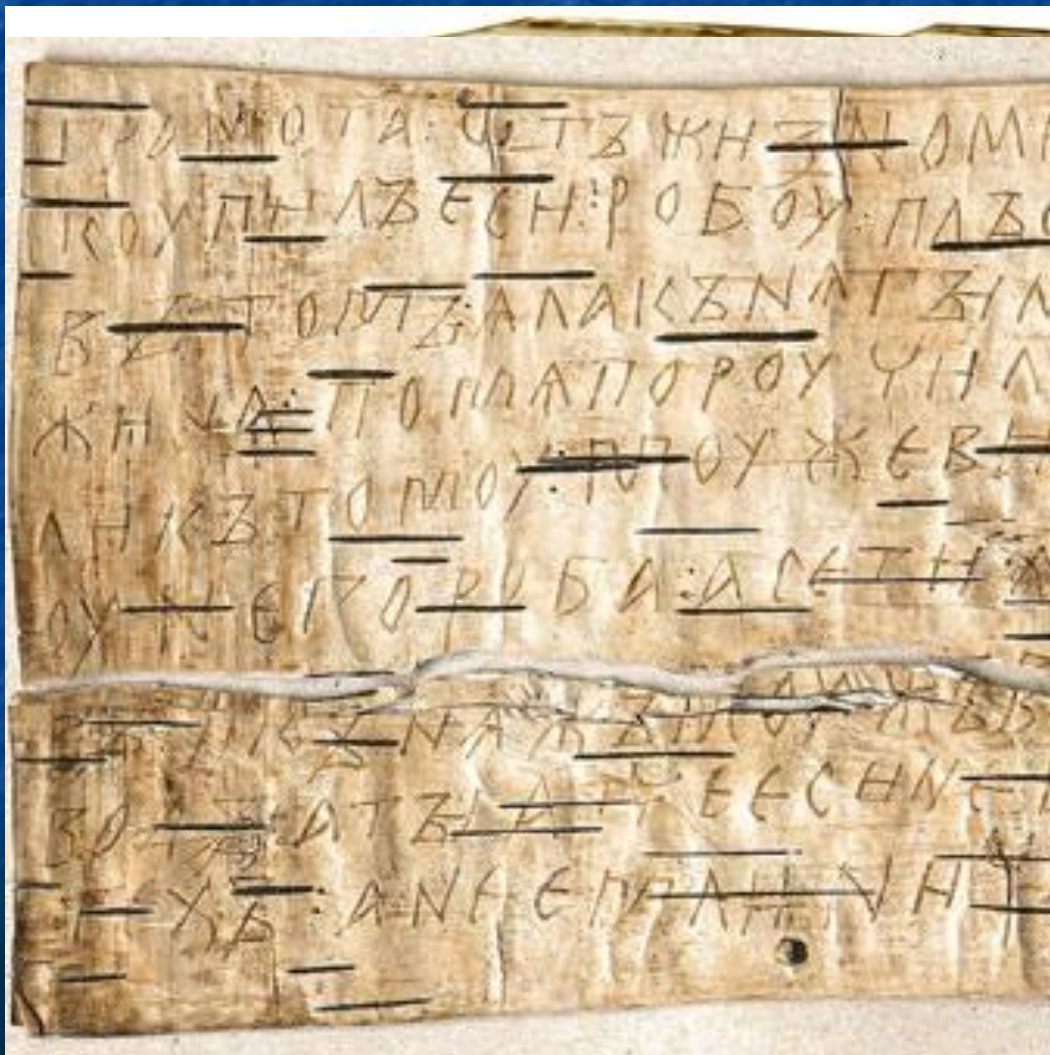 ГРАМОТА : ѠТЪ ЖИЗНОМИ
КОУПИЛЪ ЕСИ : РОБОУ : ПЛЪС
ВЪ ТОМЪ : ѦЛА КЪНѦГЫН
ЖИНА : ПО МѦ ПОРОУЧИЛ
ЛИ КЪ ТОМОУ : МОУЖЕВИ
ОУ НЕГО РОБА : А СЕ ТИ Х
КЪНѦЖЪ МОУЖЪ В
ВОДЫ А ТЫ АТЧЕ ЕСИ НЕ
ТЕХЪ : А НЕ ЕМЛИ НИЧ